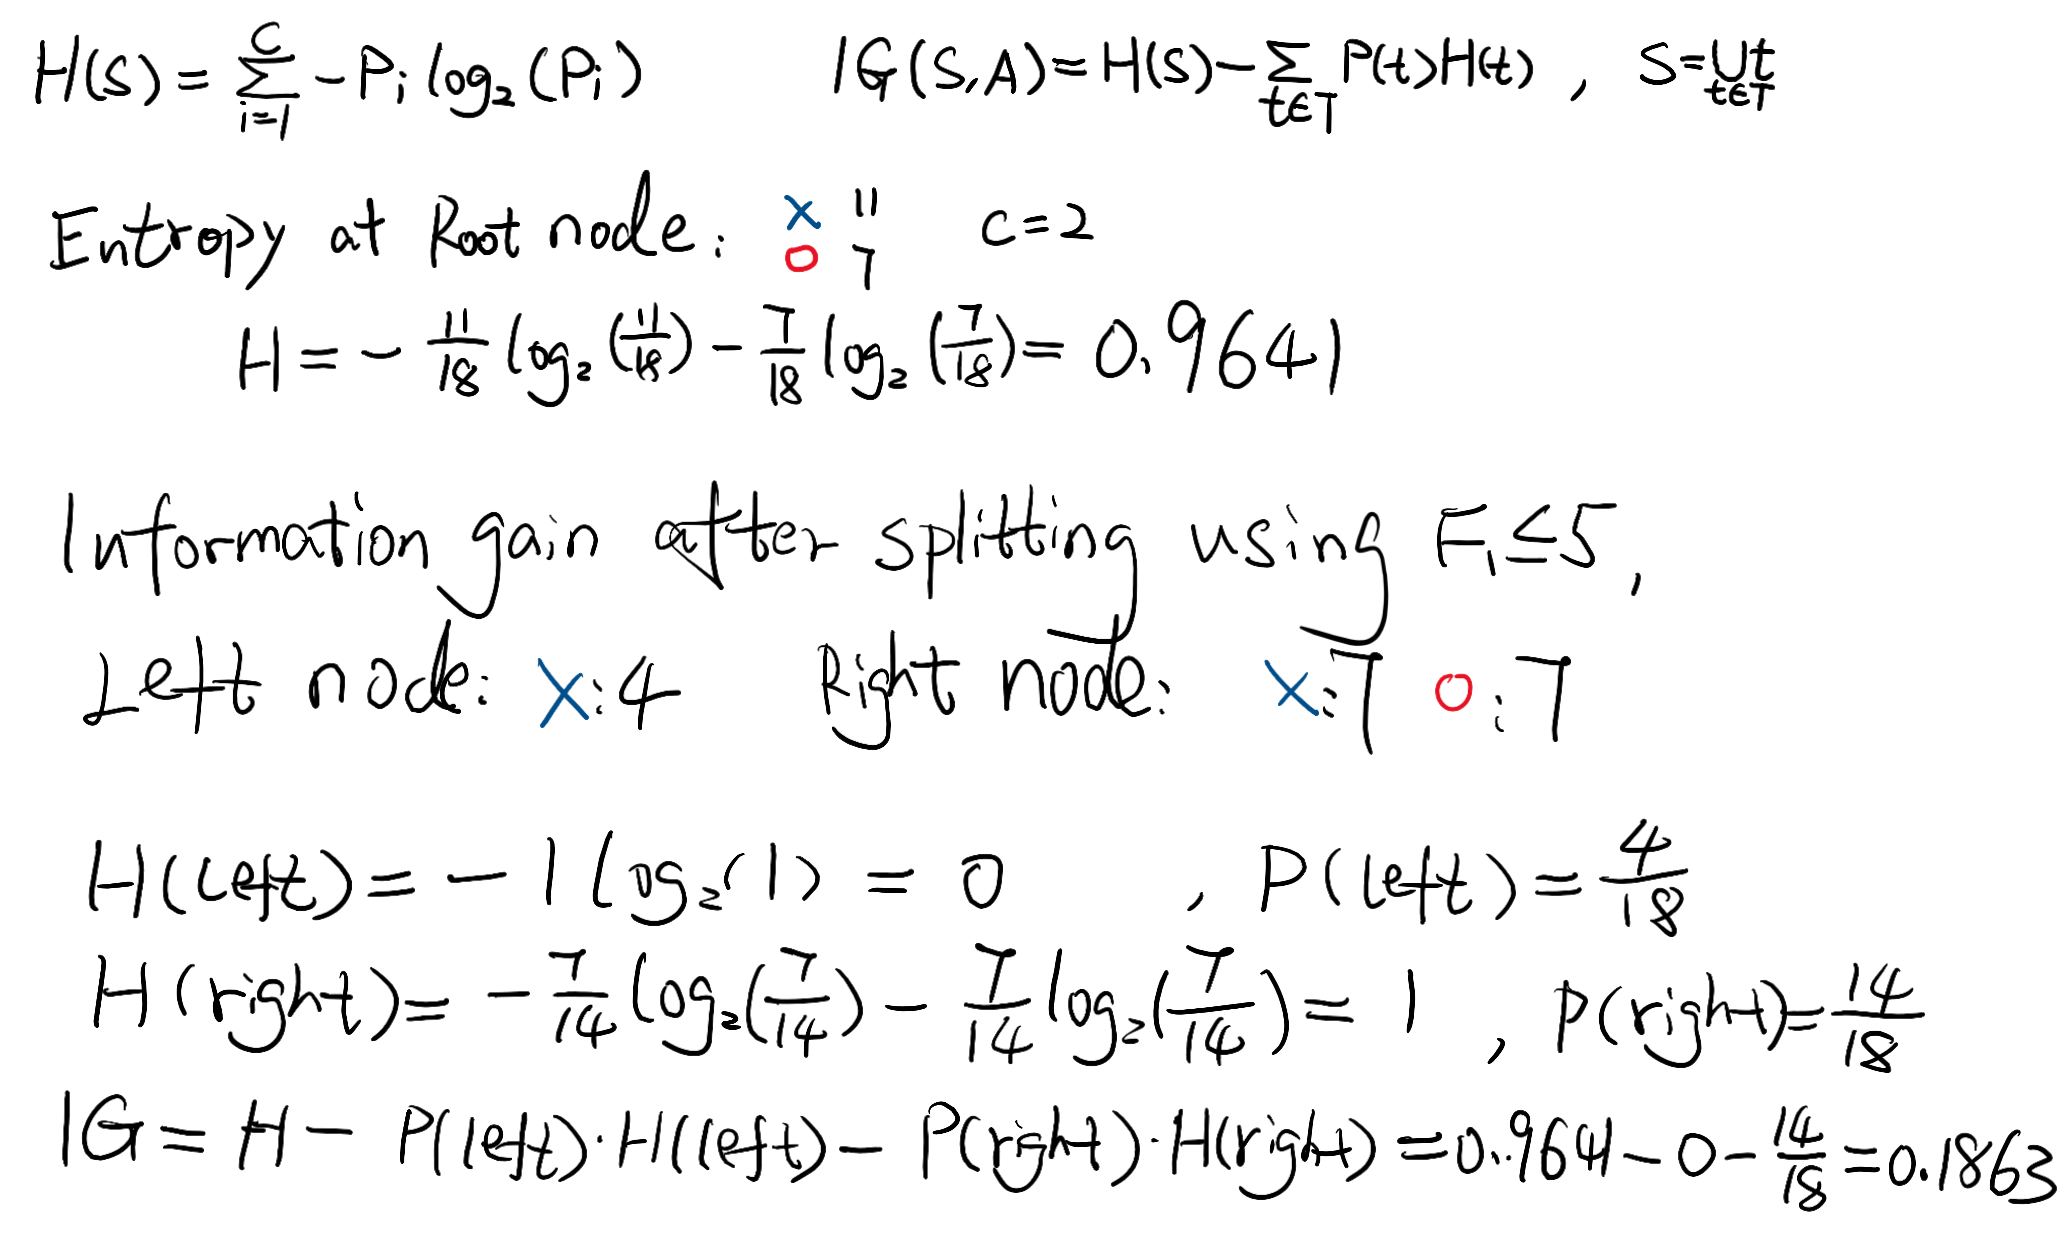 H(S) = Σ_{i=1}^{C} -P_i log₂(P_i)    IG(S,A) = H(S) - Σ_{t∈T} P(t)H(t) , S = ∪_{t∈T} t
Entropy at Root node: X 11    C=2
O 7
H = - 11/18 log₂(11/18) - 7/18 log₂(7/18) = 0.9641
Information gain after splitting using F₁≤5,
Left node: X:4    Right node: X:7 O:7
H(Left) = - 1 log₂(1) = 0 , P(left) = 4/18
H(right) = - 7/14 log₂(7/14) - 7/14 log₂(7/14) = 1 , P(right) = 14/18
IG = H - P(left)·H(left) - P(right)·H(right) = 0.9641 - 0 - 14/18 = 0.1863